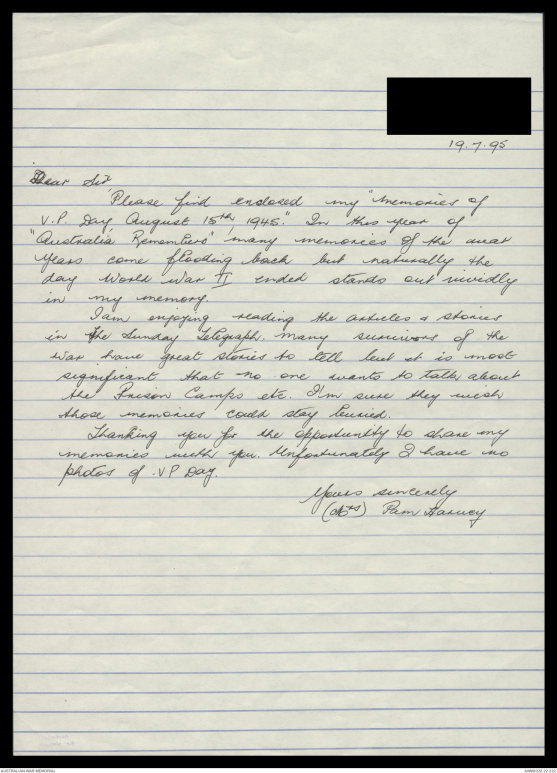 19.7.95
Dear Sir
Please find enclosed my "Memories of
V.P. Day, August 15th 1945." In this year of
"Australia Remembers" many memories of the war
years come flooding back but naturally the
day World War II ended stands out vividly
in my memory.
I am enjoying reading the articles & stories
in the Sunday Telegraph. Many survivors of the
war have great stories to tell but it is most
significant that no one wants to talk about
the Prison Camps etc. I'm sure they wish
those memories could stay buried.
Thanking you for the opportunity to share my
memories with you. Unfortunately I have no
photos of V P Day.
Yours sincerely
(Mrs) Pam Harvey
AUSTRALIAN WAR MEMORIAL